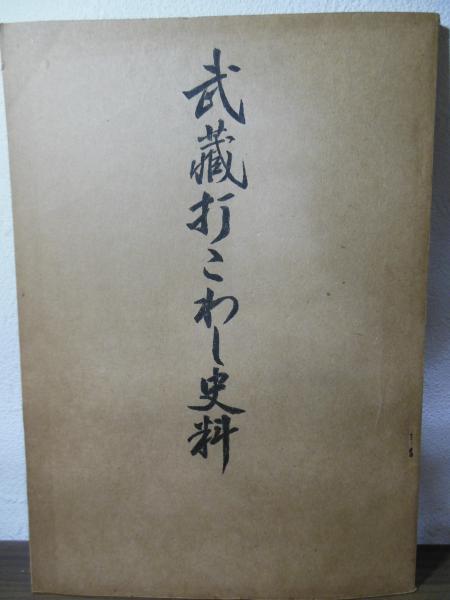 武藏打こわし史料